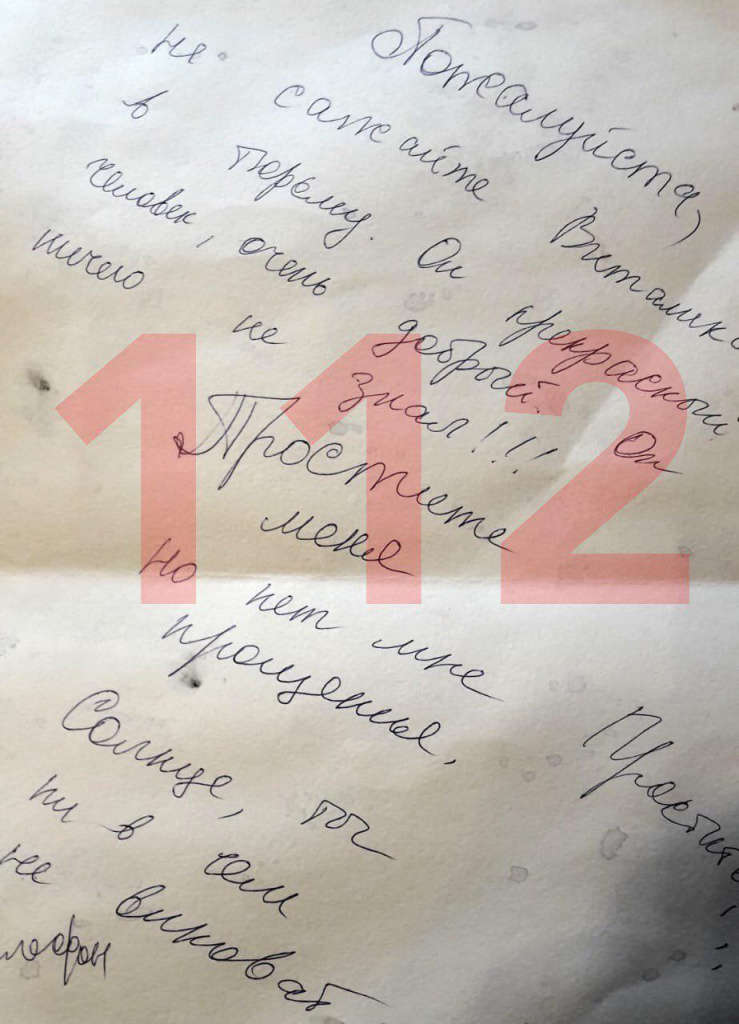 Пожалуйста,
не сажайте Виталика
в тюрьму. Он прекрасный
человек, очень добрый. Он
ничего не знал!!!
Простите
меня
но нет мне
прощенья. Простите
!!
Солнце, ты
ни в чем
не виноват
112